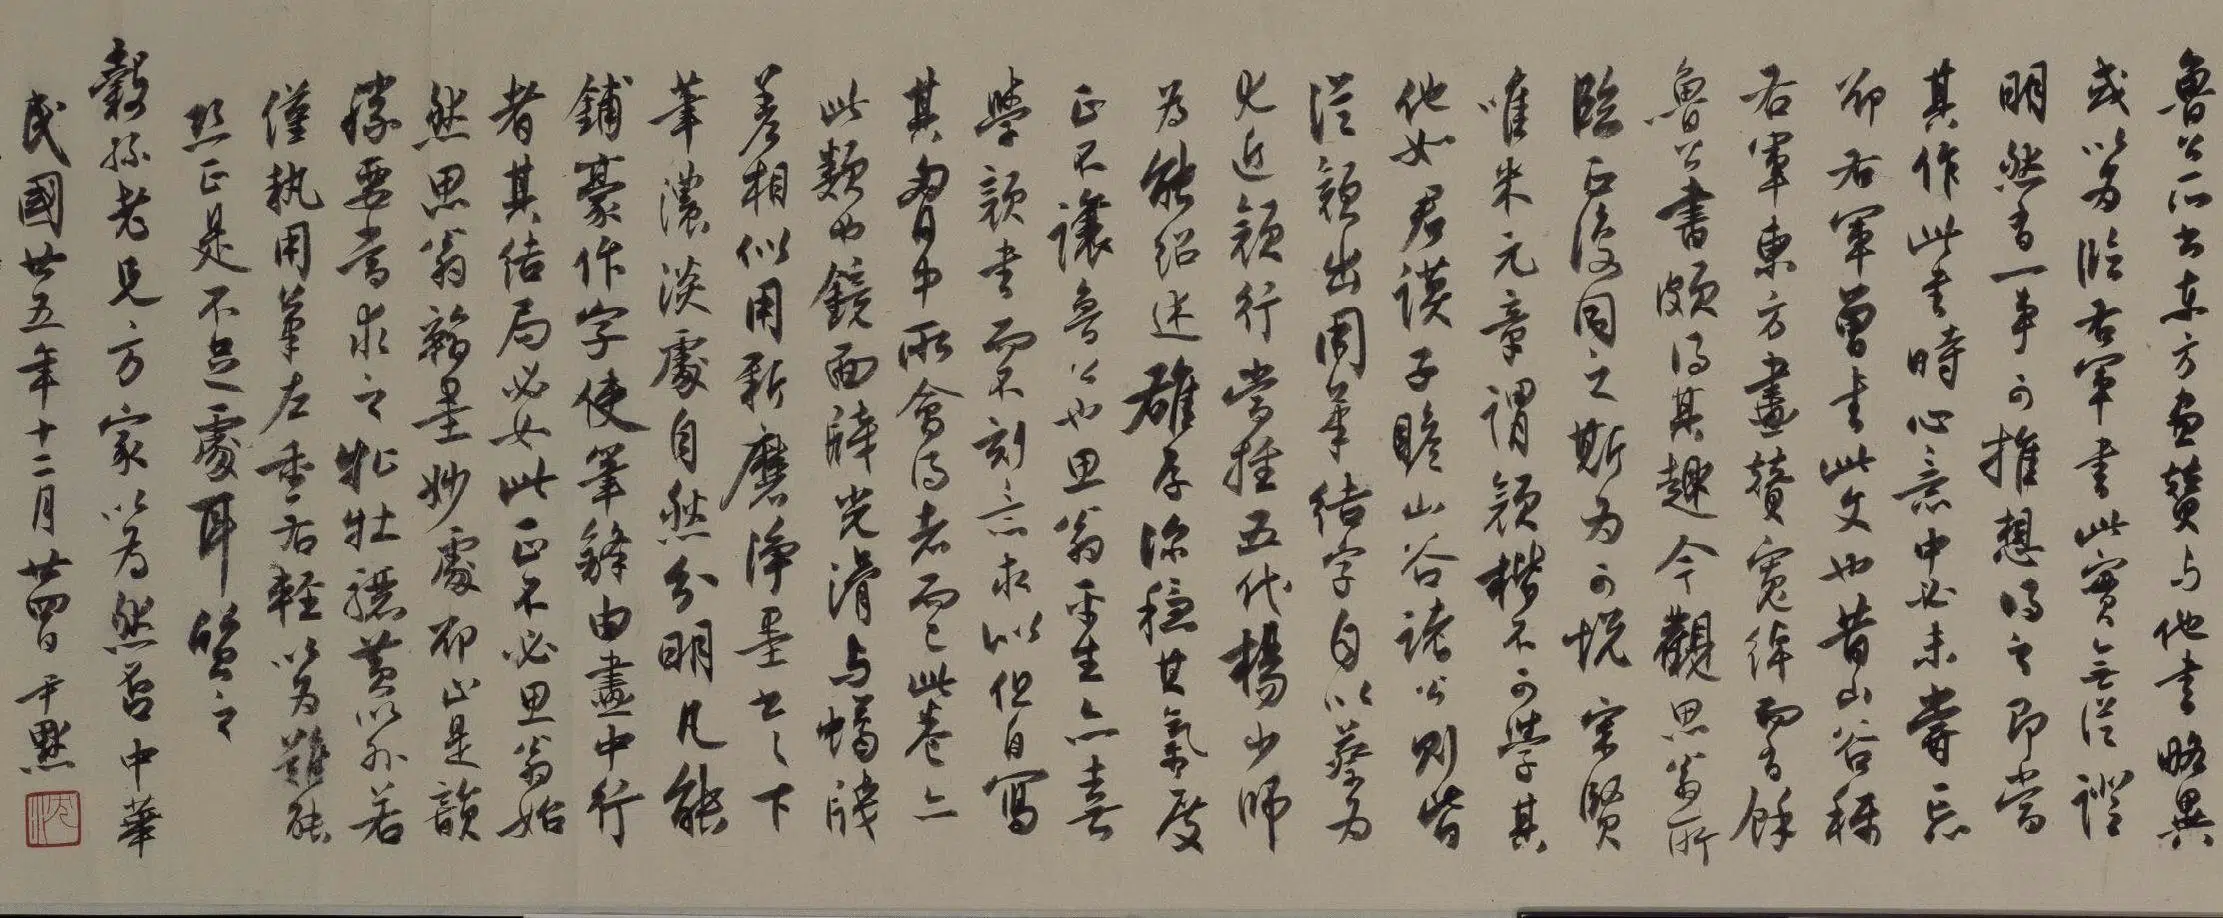 魯公所書東方畫贊與他書略異
或以為臨右軍書此實無從證
明然有一事可推想得之即當
其作此書時心意中必未嘗忘
卻右軍曾書此文也昔山谷稱
右軍東方畫贊寬綽而有餘
魯公書頗得其趣今觀思翁所
臨正復同之斯為可悅宋賢
唯米元章謂顏楷不可學其
他如君謨子瞻山谷諸公則皆
從顏出用筆結字自以蔡為
尤近顏行當推五代楊少師
為能紹述雄厚深穩其氣度
正不讓魯公也思翁平生亦喜
學顏書而不刻意求似但自寫
其胸中所會得者而已此卷亦
此類也鏡面牋光滑與蠟牋
差相似用新磨淨墨書之下
筆濃淡處自然分明凡能
鋪豪作字使筆鋒由畫中行
者其結局必如此正不必思翁始
然思翁翰墨妙處卻正是韻
勝要當求之牝牡驪黃以外若
僅執用筆左重右輕以為難能
默正是不足處耳質之
穀孫老兄方家以為然否中華
民國廿五年十二月廿四日尹默
沈